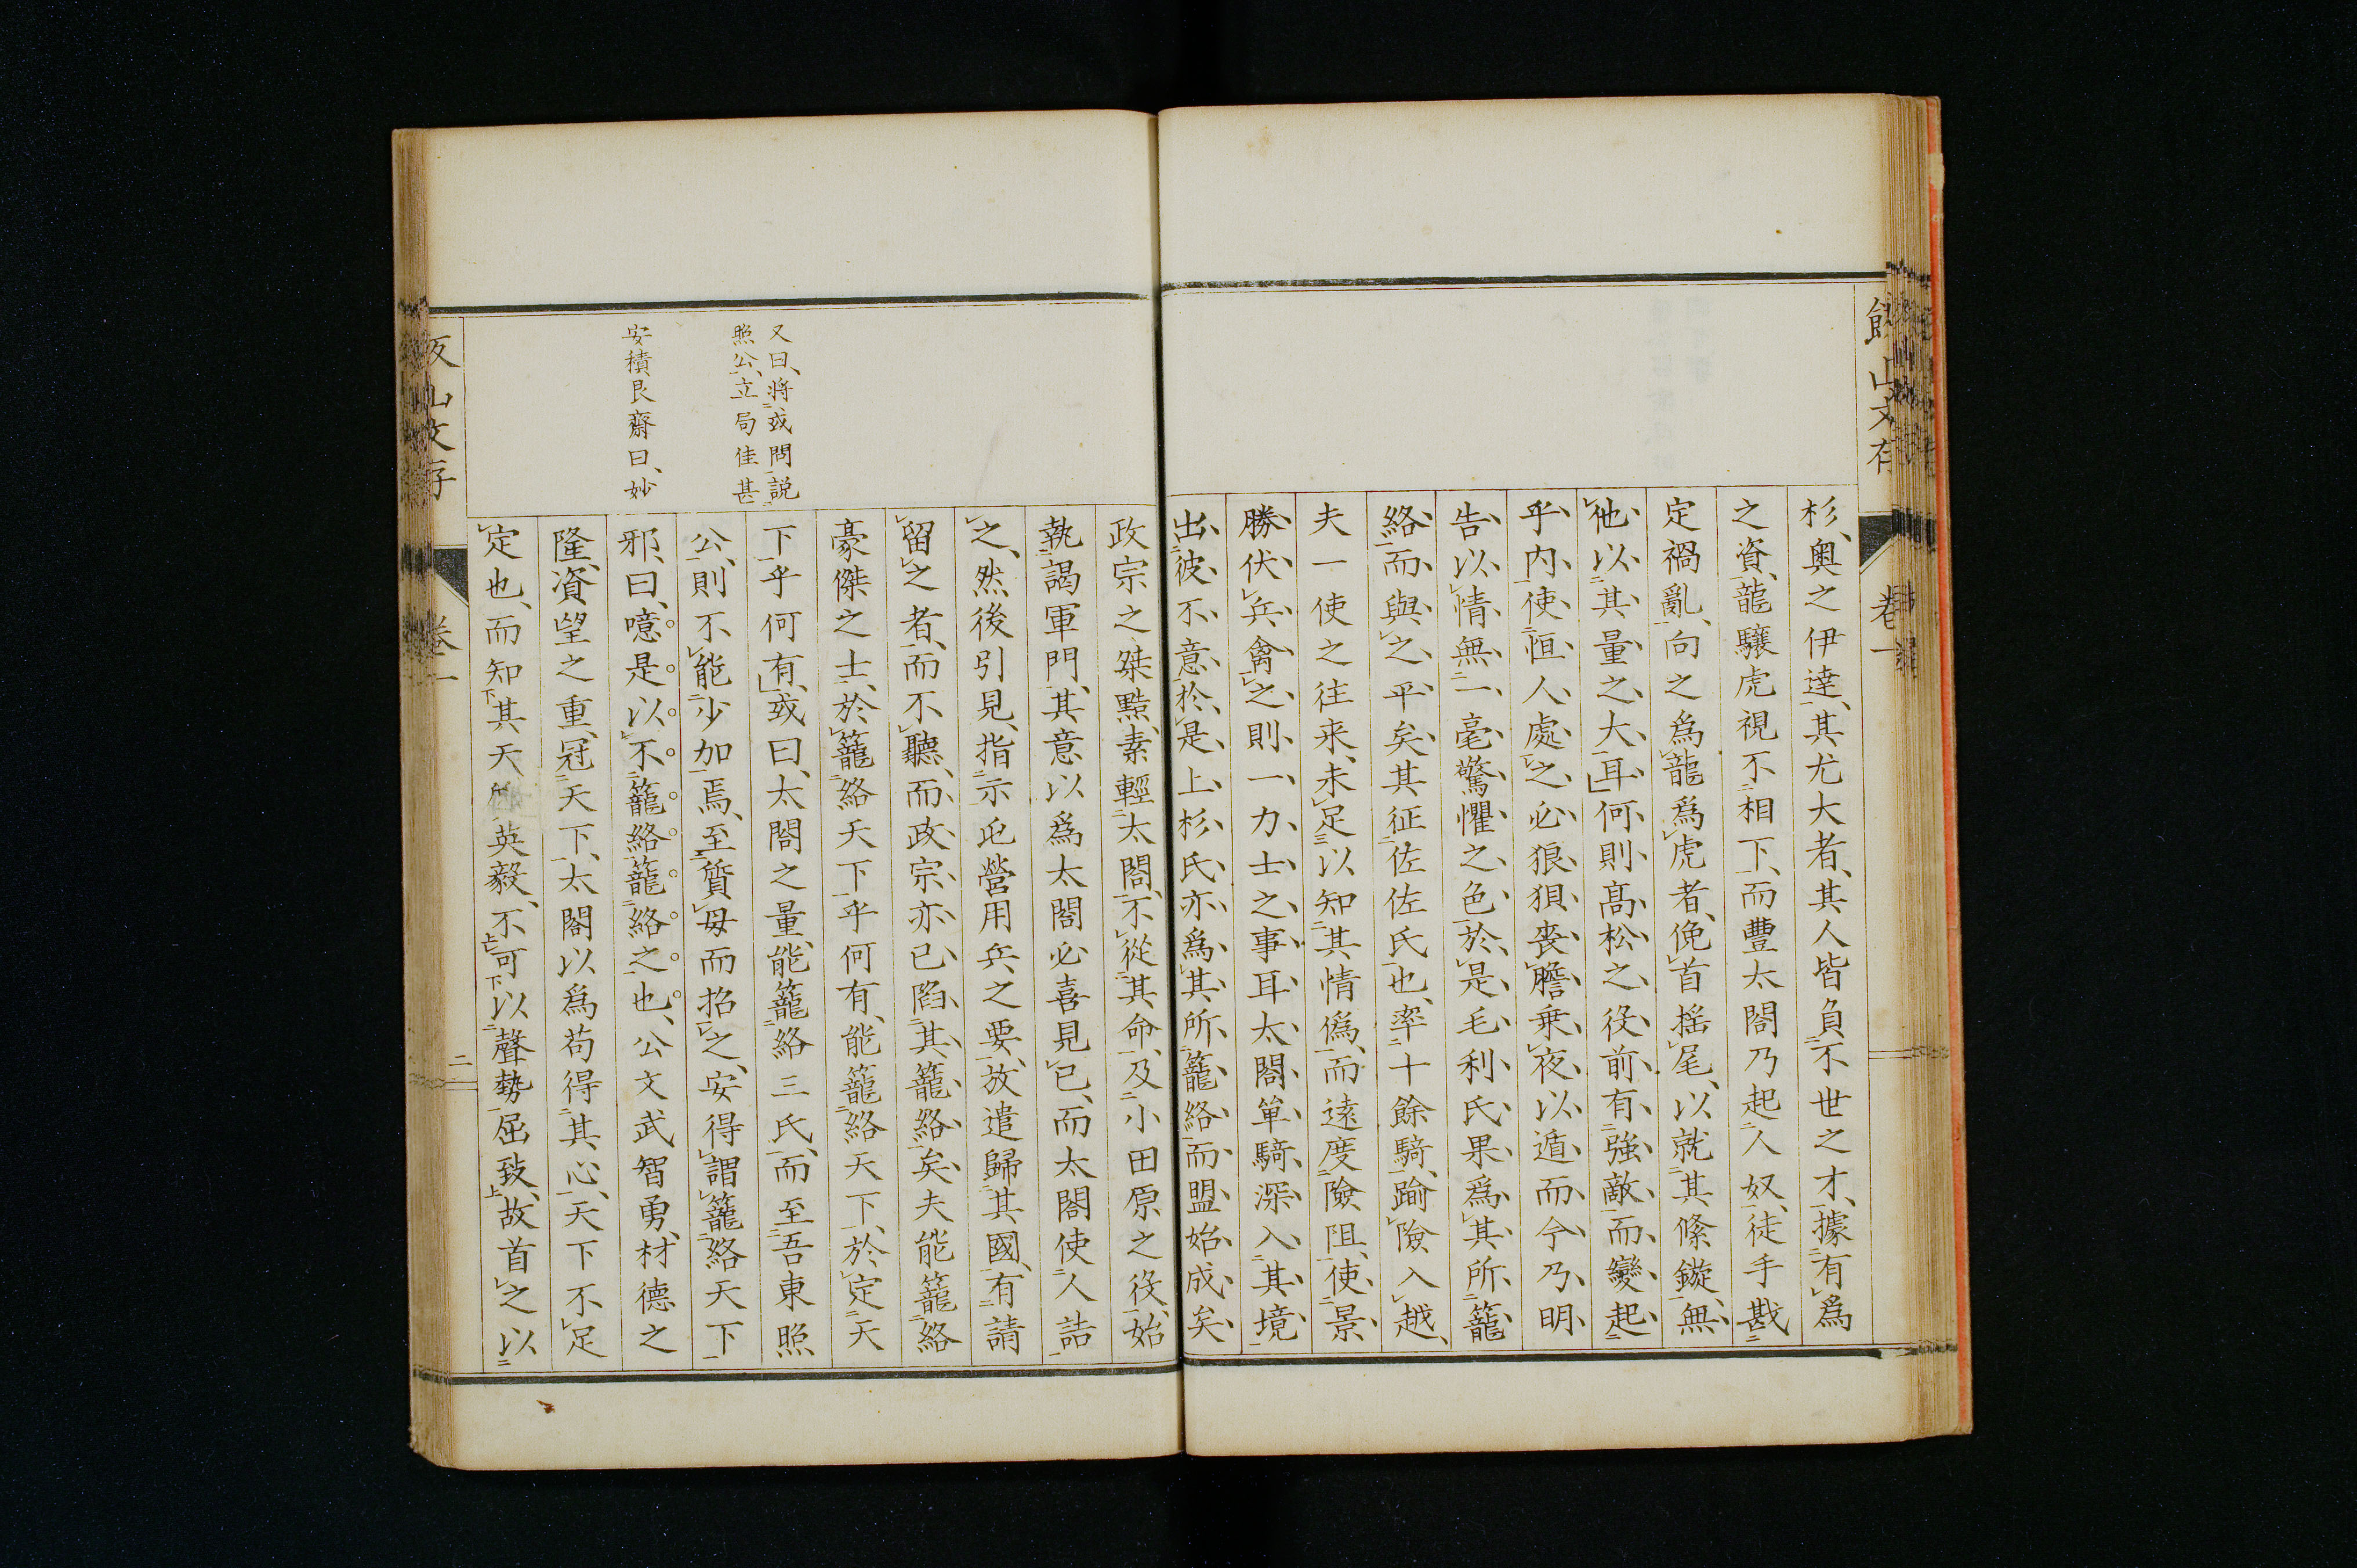 杉、奥之伊達、其尤大者、其人皆負不世之才、據有爲
之資、龍驤虎視不相下、而豐太閤乃起人奴、徒手戡
定禍亂、向之爲龍爲虎者、俛首搖尾、以就其絛鏇、無
他、以其量之大耳、何則高松之役前有強敵、而變起
乎内、使恒人處之、必狼狽喪膽、乗夜以遁、而今乃明
告以情、無一毫驚懼之色、於是毛利氏果爲其所籠
絡、而與之平矣、其征佐佐氏也、率十餘騎、踰險入越、
夫一使之往来、未足以知其情僞、而遠度險阻、使景
勝伏兵禽之、則一力士之事耳、太閤單騎深入其境、
出彼不意、於是上杉氏亦爲其所籠絡、而盟始成矣、
又曰、將或問説
照公、立局佳甚
安積艮齋曰、妙
政宗之桀黠、素輕太閤、不從其命、及小田原之役、始
執謁軍門、其意以爲太閤必喜見已、而太閤使人詰
之、然後引見、指示屯營用兵之要、放遣歸其國、有請
留之者、而不聽、而政宗亦已陷其籠絡矣、夫能籠絡
豪傑之士、於籠絡天下乎何有、能籠絡天下、於定天
下乎何有、或曰、太閤之量、能籠絡三氏、而至吾東照
公、則不能少加焉、至質母而招之、安得謂籠絡天下
邪、曰、噫是以不籠絡籠絡之也、公文武智勇、材德之
隆、資望之重、冠天下、太閤以爲苟得其心、天下不足
定也、而知其天英毅、不可以聲勢屈致、故首之以
飯山文存 卷一
飯山文存 卷一 二